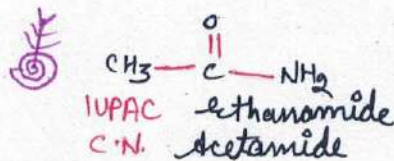 O
CH3 — C — NH2
IUPAC Ethanamide
C.N. Acetamide